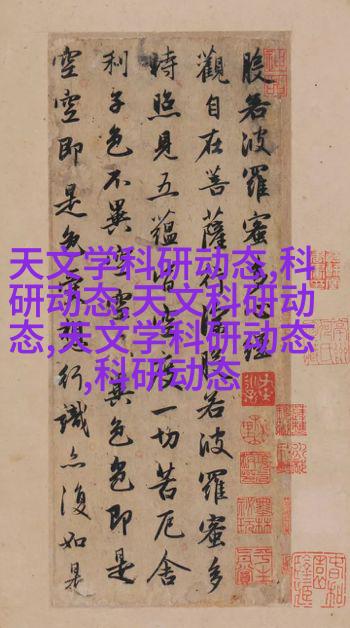 般若波羅蜜多心經
觀自在菩薩行深般若波羅蜜多
時照見五蘊皆空度一切苦厄舍
利子色不異空空不異色色即是
空空即是色受想行識亦復如是
天文学科研动态,科
研动态,天文科研动
态,天文学科研动态
,科研动态